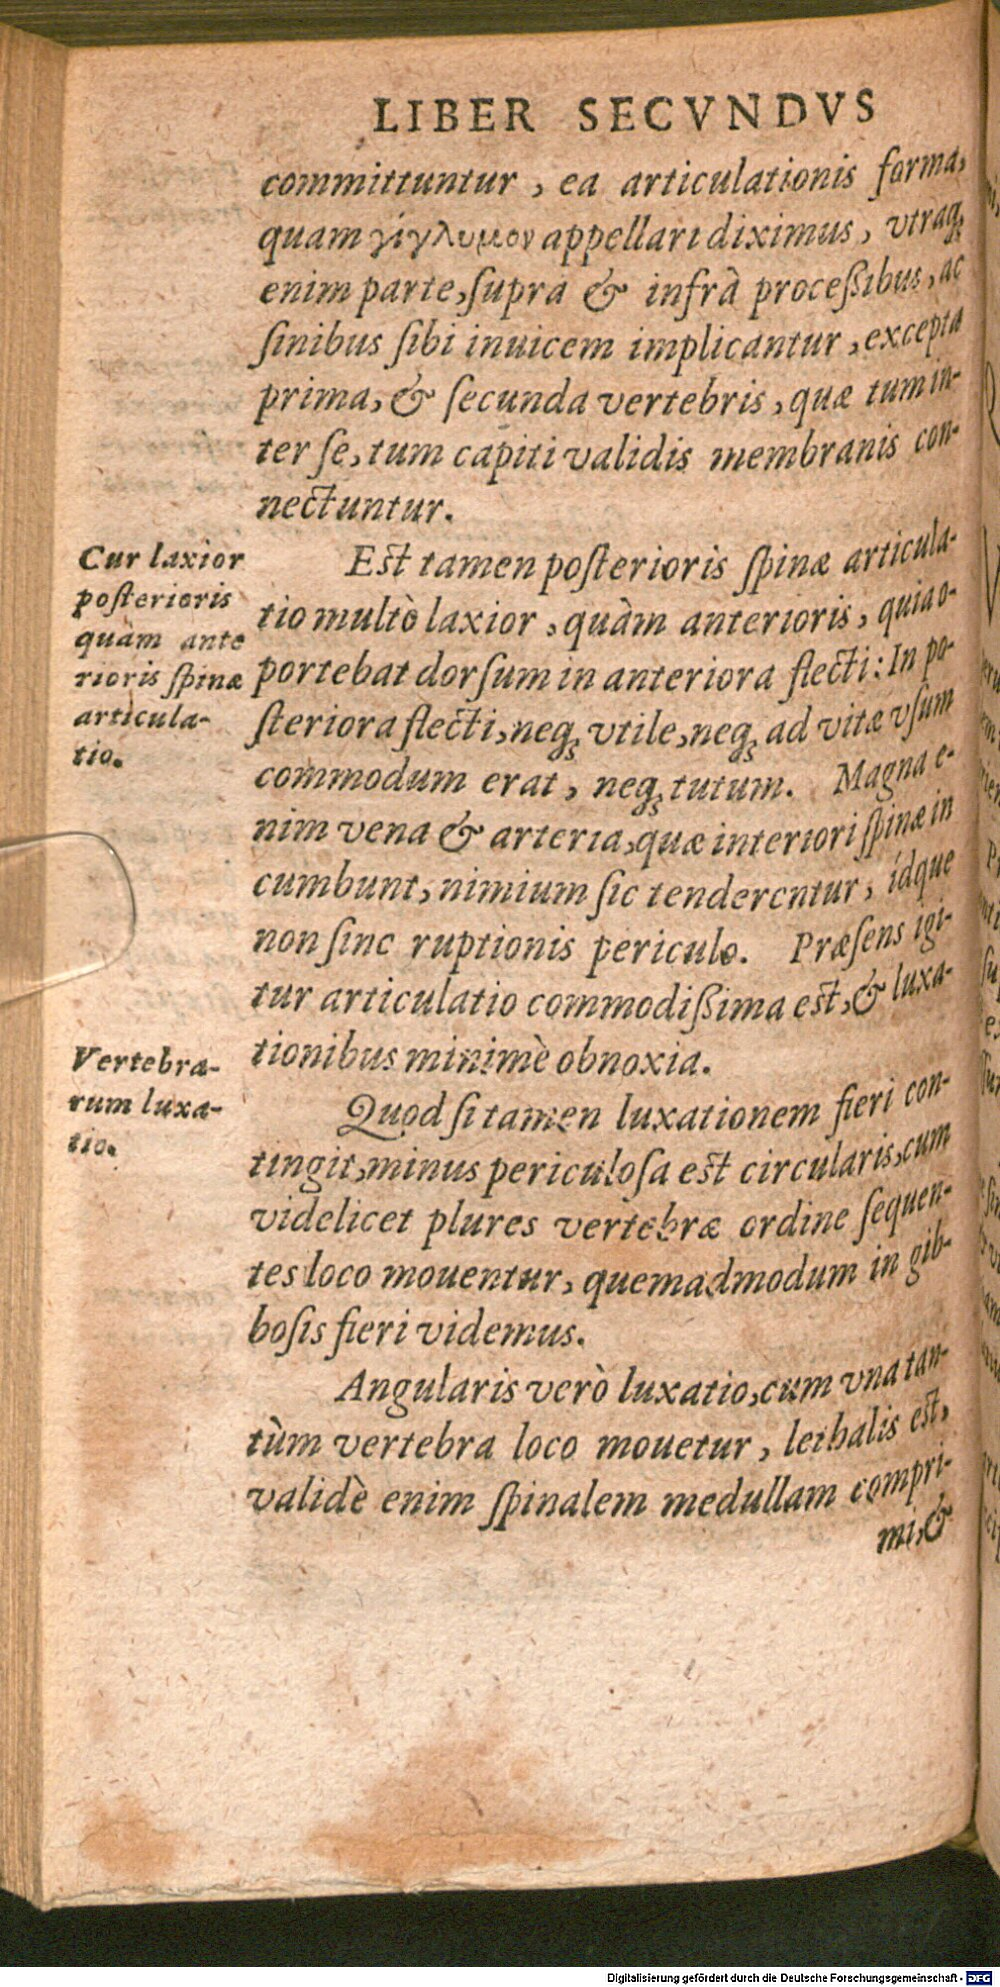 LIBER SECVNDVS
committuntur, ea articulationis forma,
quam γίγλυμον appellari diximus, vtraq́;
enim parte, ſupra & infrà proceßibus, ac
ſinibus ſibi inuicem implicantur, excepta
prima, & ſecunda vertebris, quæ tum in-
ter ſe, tum capiti validis membranis con-
nectuntur.
Cur laxior
poſterioris
quàm ante
rioris ſpinæ
articula-
tio.
Eſt tamen poſterioris ſpinæ articula-
tio multò laxior, quàm anterioris, quia o-
portebat dorſum in anteriora flecti: In po-
ſteriora flecti, neq; vtile, neq; ad vitæ vſum
commodum erat, neq; tutum. Magna e-
nim vena & arteria, quæ interiori ſpinæ in
cumbunt, nimium ſic tenderentur, idque
non ſine ruptionis periculo. Præſens igi-
tur articulatio commodißima eſt, & luxa-
tionibus minimè obnoxia.
Vertebra-
rum luxa-
tio.
Quod ſi tamen luxationem fieri con-
tingit, minus periculoſa eſt circularis, cum
videlicet plures vertebræ ordine ſequen-
tes loco mouentur, quemadmodum in gib-
boſis fieri videmus.
Angularis verò luxatio, cum vna tan-
tùm vertebra loco mouetur, lethalis eſt,
validè enim ſpinalem medullam compri-
mi, &
Digitalisierung gefördert durch die Deutsche Forschungsgemeinschaft - DFG